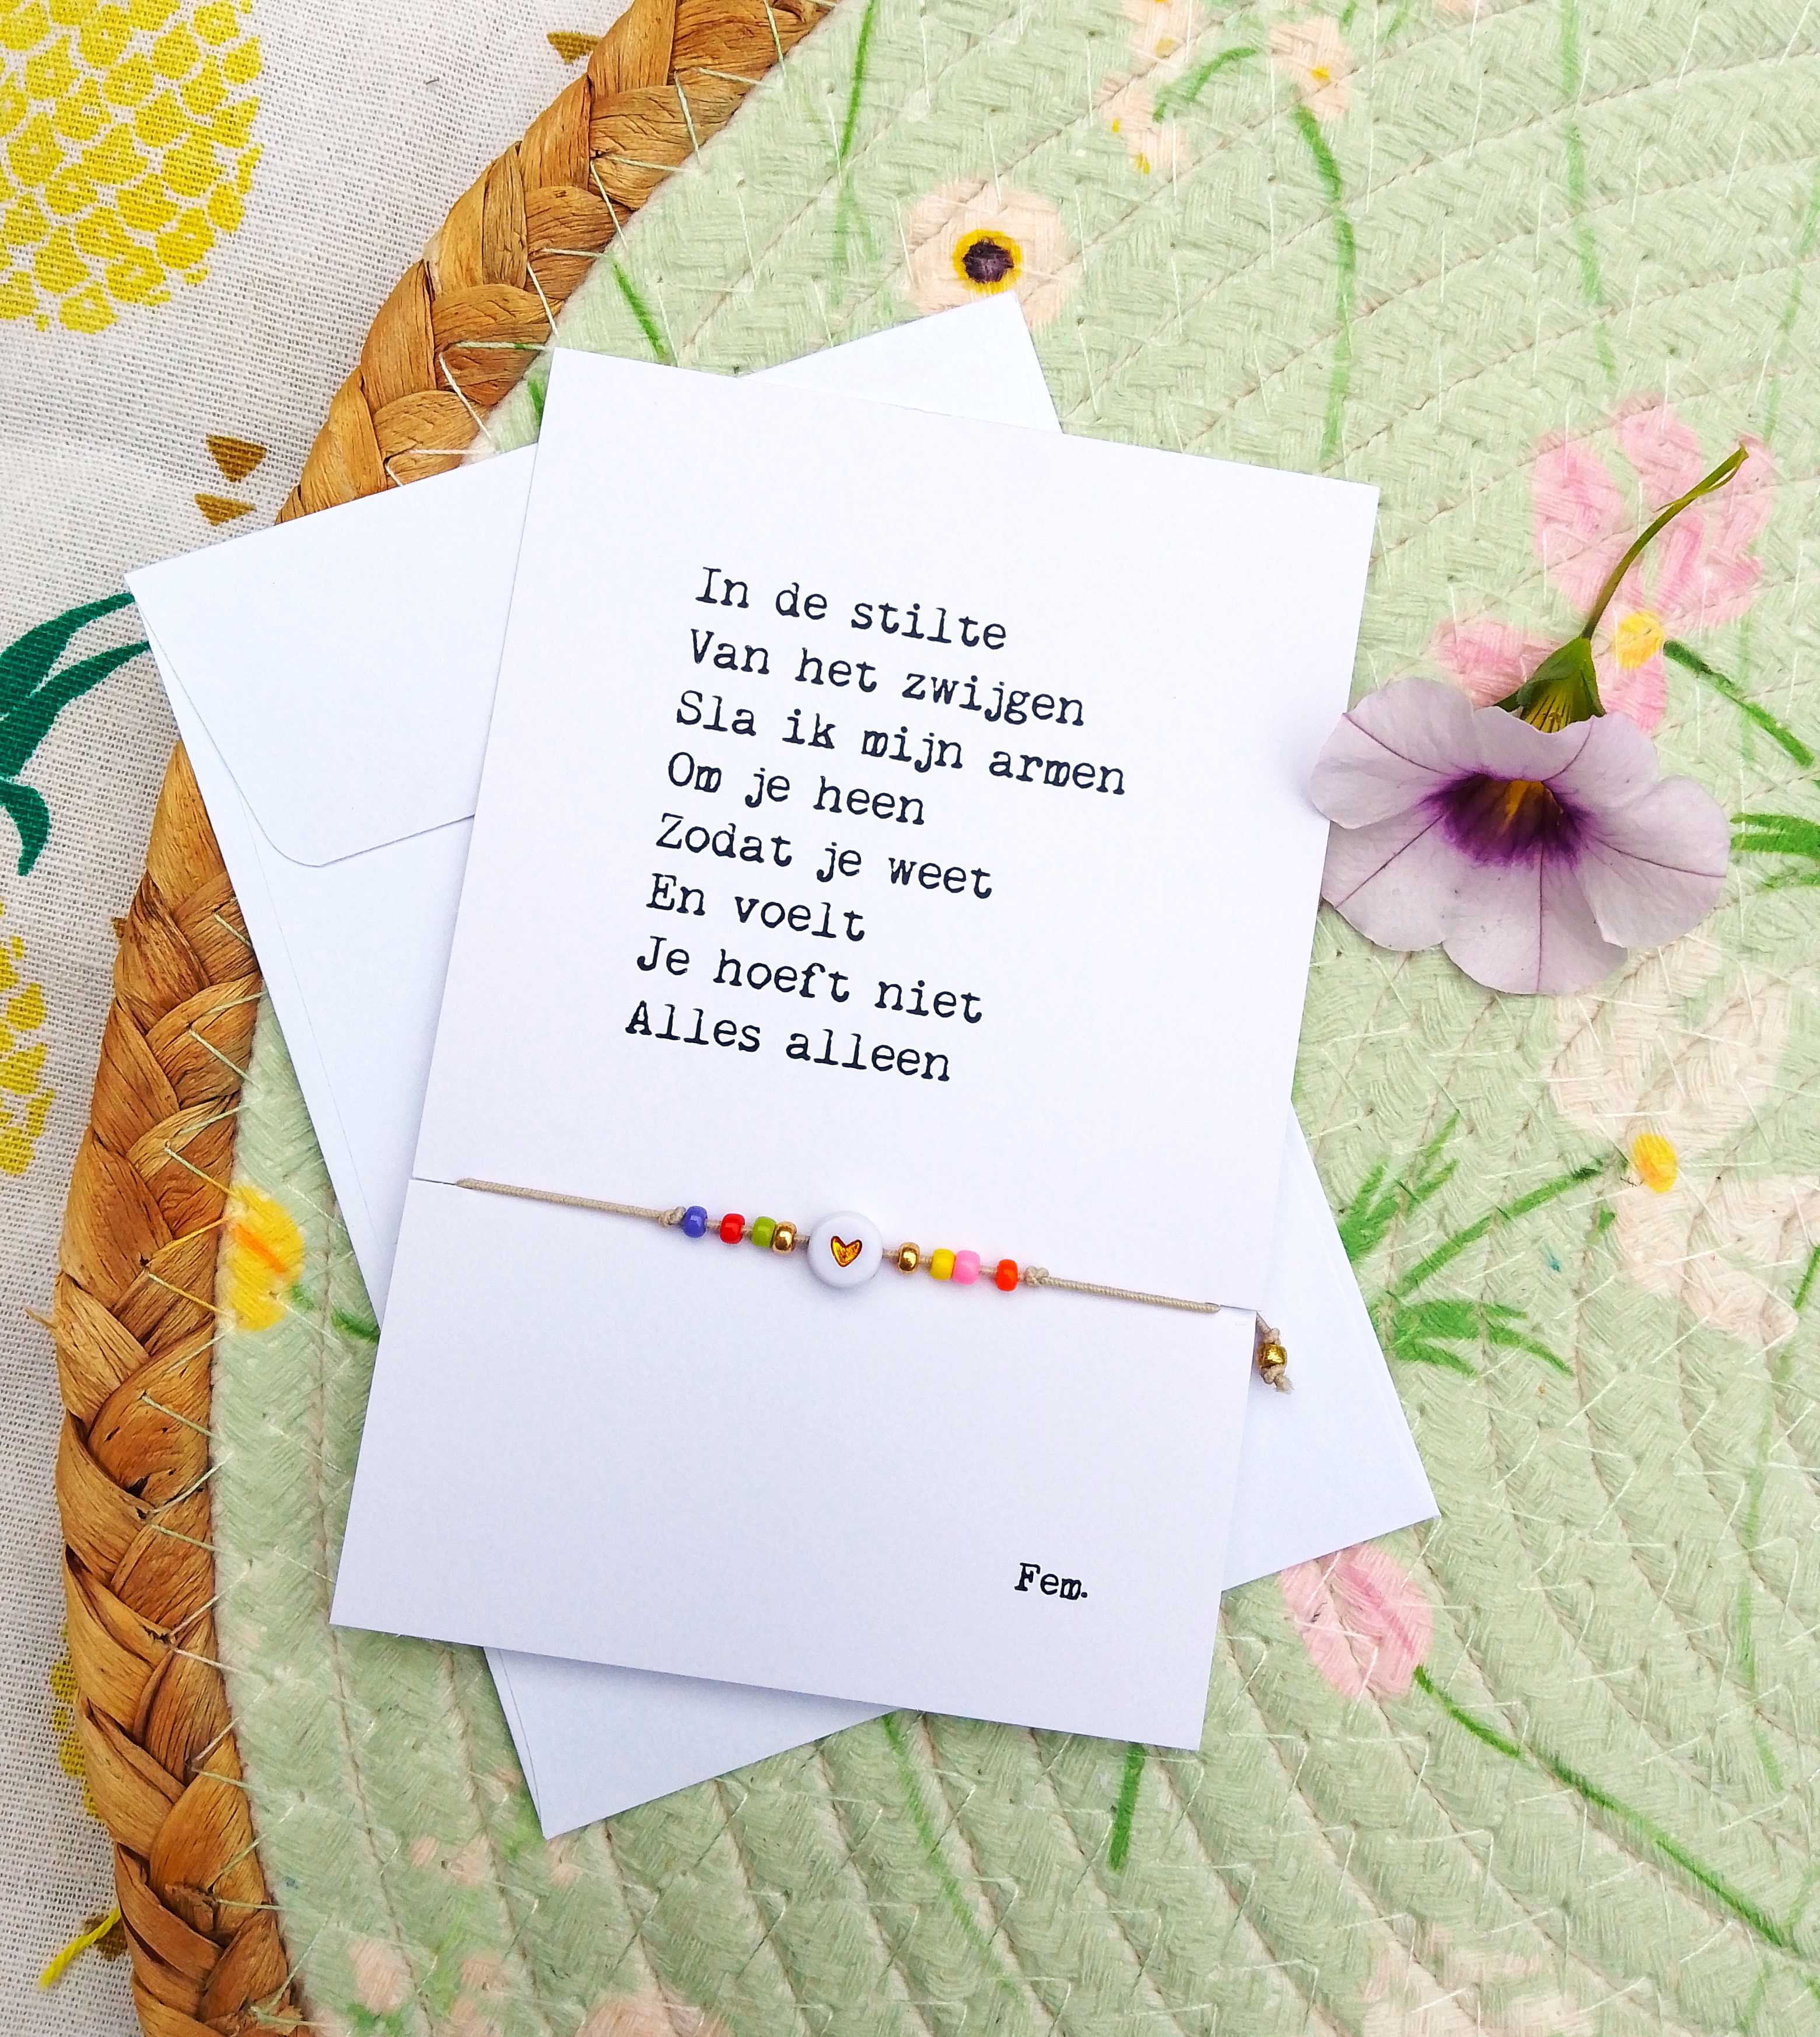 In de stilte
Van het zwijgen
Sla ik mijn armen
Om je heen
Zodat je weet
En voelt
Je hoeft niet
Alles alleen
Fem.